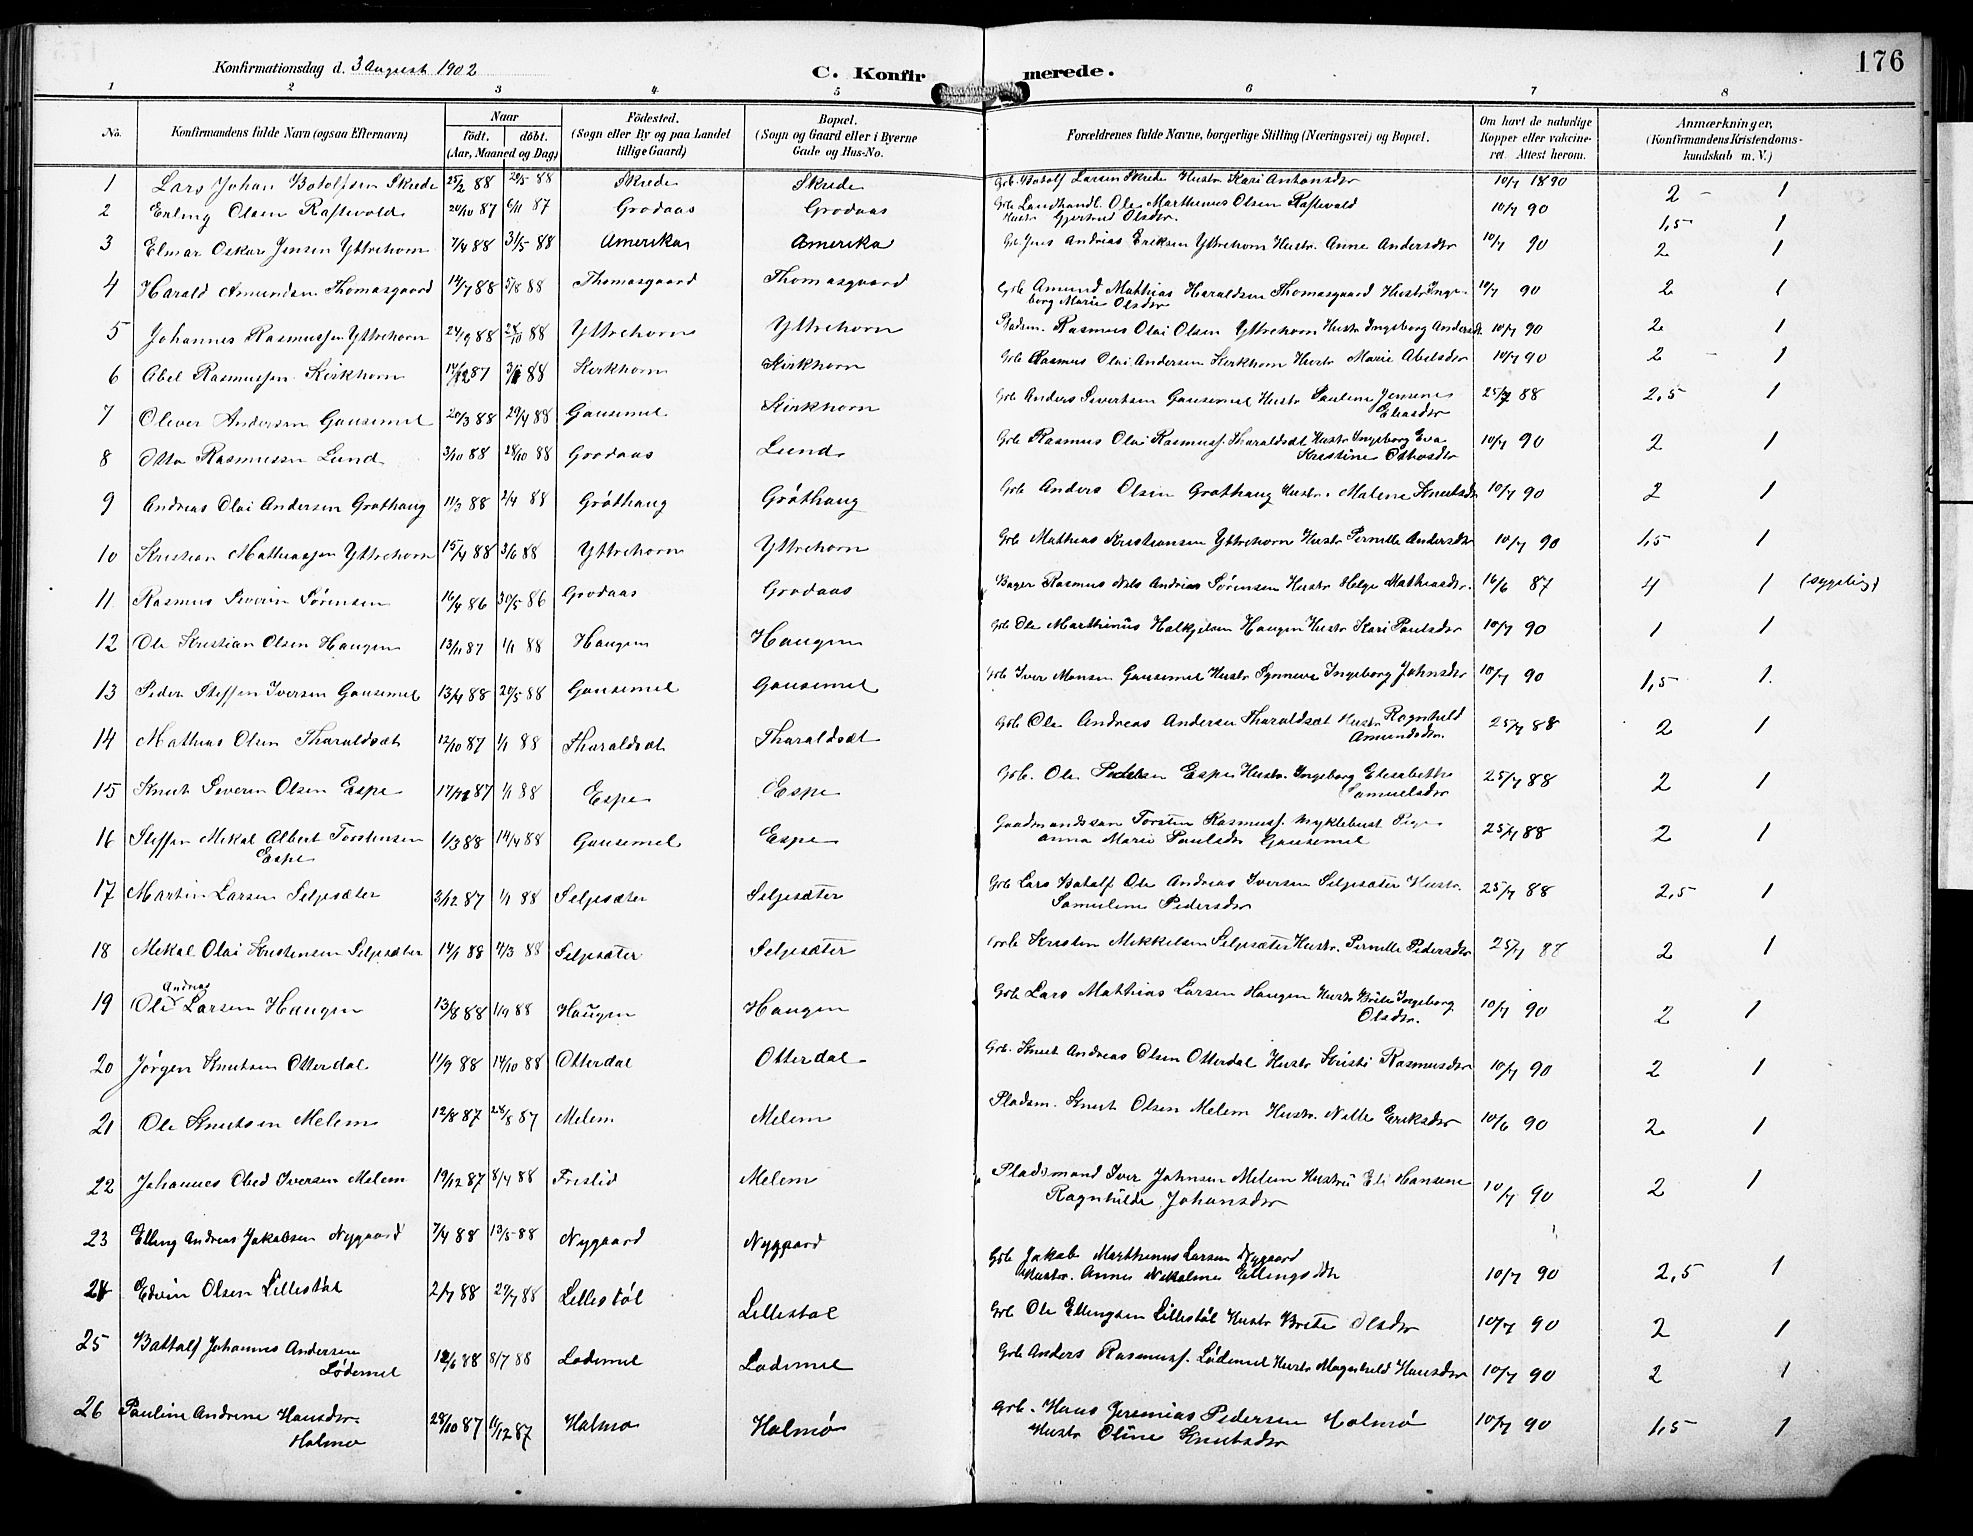 176
Konfirmationsdag d. 3 August 1902
C. Konfirmerede.
1 2 3 4 5 6 7 8
No. Konfirmandens fulde Navn (ogsaa Efternavn) Naar født. døbt. (Aar, Maaned og Dag) Fødested. (Sogn eller By og paa Landet tillige Gaard) Bopæl. (Sogn og Gaard eller i Byerne Gade og Hus-No. Forældrenes fulde Navne, borgerlige Stilling (Næringsvei) og Bopæl. Om havt de naturlige Kopper eller vakcineret. Attest herom. Anmærkninger, (Konfirmandens Kristendomskundskab m. V.)
1 Lars Johan Botolfsen Skrede 25/2 88 29/5 88 Skrede Skrede Grb. Botolf Larsen Skrede Hustr Kari Antonsdr 10/7 1890 2 - 1
2 Erling Olsen Raftevold 20/10 87 6/11 87 Grodaas Grodaas Grb Landhandl. Ole Marthinus Olsen Raftevold
Hustr Gjertrud Olsdr. 10/7 90 1,5 1
3 Elmar Oskar Jensen Yttrehorn 7/4 88 31/5 88 Amerika Amerika Grb. Jens Andreas Eriksen Yttrehorn Hustr. Anne Andersdr 10/7 90 2 1
4 Harald Amundsen Thomasgaard 14/7 88 5/8 88 Thomasgaard Thomasgaard Grb Amund Mathias Haraldsen Thomasgaard Hustr Inge-
borg Marie Olsdr 10/7 90 2 1
5 Johannes Rasmussen Yttrehorn 24/9 88 28/10 88 Yttrehorn Yttrehorn Pladsm. Rasmus Olai Olsen Yttrehorn Hustr Ingeborg Andersdr 10/7 90 2 1
6 Abel Rasmussen Kirkhorn 87 88 Kirkhorn Kirkhorn Grb Rasmus Olai Andersen Kirkhorn Hustr Marie Abelsdr 10/7 90 2 - 1
7 Oliver Andersen Gausemel 20/3 88 29/4 88 Gausemel Kirkhorn Grb Anders Sivertsen Gausemel Hustr Pauline Jensine
Eliasdr 25/7 88 2,5 1
8 Otto Rasmussen Lund 3/10 88 28/10 88 Grodaas Lund Grb Rasmus Olai Rasmuss. Tharaldsæt Hustr Ingeborg Eva
Kristine Ottosdr 10/7 90 2 1
9 Andreas Olai Andersen Grøthaug 11/3 88 2/4 88 Grøthaug Grøthaug Grb Anders Olsen Grøthaug Hustr. Malene Knutsdr 10/7 90 2 1
10 Kristian Mathiassen Yttrehorn 15/4 88 3/6 88 Yttrehorn Yttrehorn Grb Mathias Kristiansen Yttrehorn Hustr Pernille Andersdr 10/7 90 1,5 1
11 Rasmus Severin Sørensen 16/4 86 30/5 86 Grodaas Grodaas Bager Rasmus Nils Andreas Sørensen Hustr Helge Mathiasdr. 16/6 87 4 1 (sygelig)
12 Ole Kristian Olsen Haugen 13/11 87 1/1 88 Haugen Haugen Grb Ole Marthinus Halkjelsen Haugen Hustr Kari Paulsdr 10/7 90 1 1
13 Peder Steffen Iversen Gausemel 13/4 88 20/5 88 Gausemel Gausemel Grb Iver Monsen Gausemel Hustr Synneve Ingeborg Johnsdr 10/7 90 1,5 1.
14 Mathias Olsen Tharaldsæt 12/10 87 1/1 88 Tharaldsæt Tharaldsæt Grb Ole Andreas Andersen Tharaldsæt Hustr Ragnhild
Amundsdr. 25/7 88 2 1
15 Knut Severin Olsen Espe 87 1/1 88 Espe Espe Grb. Ole Pedersen Espe Hustr. Ingeborg Elisabeth
Samuelsdr 25/7 88 2 1
16 Steffen Mikal Albert Torstensen
Espe 1/3 88 14/4 88 Gausemel Espe Gaardmandssøn Torsten Rasmuss. Myklebust Pige
Anna Marie Paulsdr Gausemel 25/7 88 2 1
17 Martin Larsen Seljesæter 3/12 87 1/1 88 Seljesæter Seljesæter Grb Lars Botolf Ole Andreas Iversen Seljesæter Hustr.
Samuline Pedersdr 25/7 88 2,5 1
18 Mikal Olai Kristensen Seljesæter 14/1 88 4/3 88 Seljesæter Seljesæter Grb Kristen Mikkelsen Seljesæter Hustr. Pernille Pedersdr 25/7 88 2 1
19 Ole Andreas Larsen Haugen 13/8 88 1/9 88 Haugen Haugen Grb Lars Mathias Larsen Haugen Hustr Brite Ingeborg
Olsdr. 10/7 90 2 1
20 Jørgen Knutsen Otterdal 11/9 88 14/10 88 Otterdal Otterdal Grb. Knut Andreas Olsen Otterdal Hustr Kristi Rasmusdr 10/7 90 2 1
21 Ole Knutsen Melem 12/8 87 28/8 87 Melem Melem Pladsm. Knut Olsen Melem Hustr. Nille Eriksdr 10/6 90 2 1
22 Johannes Obed Iversen Melem 19/12 87 8/4 88 Frislid Melem Pladsmand Iver Johnsen Melem Hustru Eli Hansine
Ragnhilde Johansdr 10/7 90 2 1
23 Elling Andreas Jakobsen Nygaard 7/4 88 13/5 88 Nygaard Nygaard Grb Jakob Marthinus Larsen Nygaard
Hustr. Anne Nikoline Ellingsdtr 10/7 90 2,5 1
24 Edvin Olsen Lillestøl 2/7 88 29/7 88 Lillestøl Lillestøl Grb Ole Ellingsen Lillestøl Hustr Brite Olsdr 10/7 90 2 1
25 Battolf Johannes Andersen
Lødemel 12/6 88 8/7 88 Lødemel Lødemel Grb Anders Rasmuss. Lødemel Hustr Magnhild Hansdr 10/7 90 2 1
26 Pauline Andrine Hansdr.
Holmø 28/10 87 11/12 87 Holmø Holmø Grb. Hans Jeremias Pedersen Holmø
Hustr Oline Knutsdr 10/7 90 1,5 1